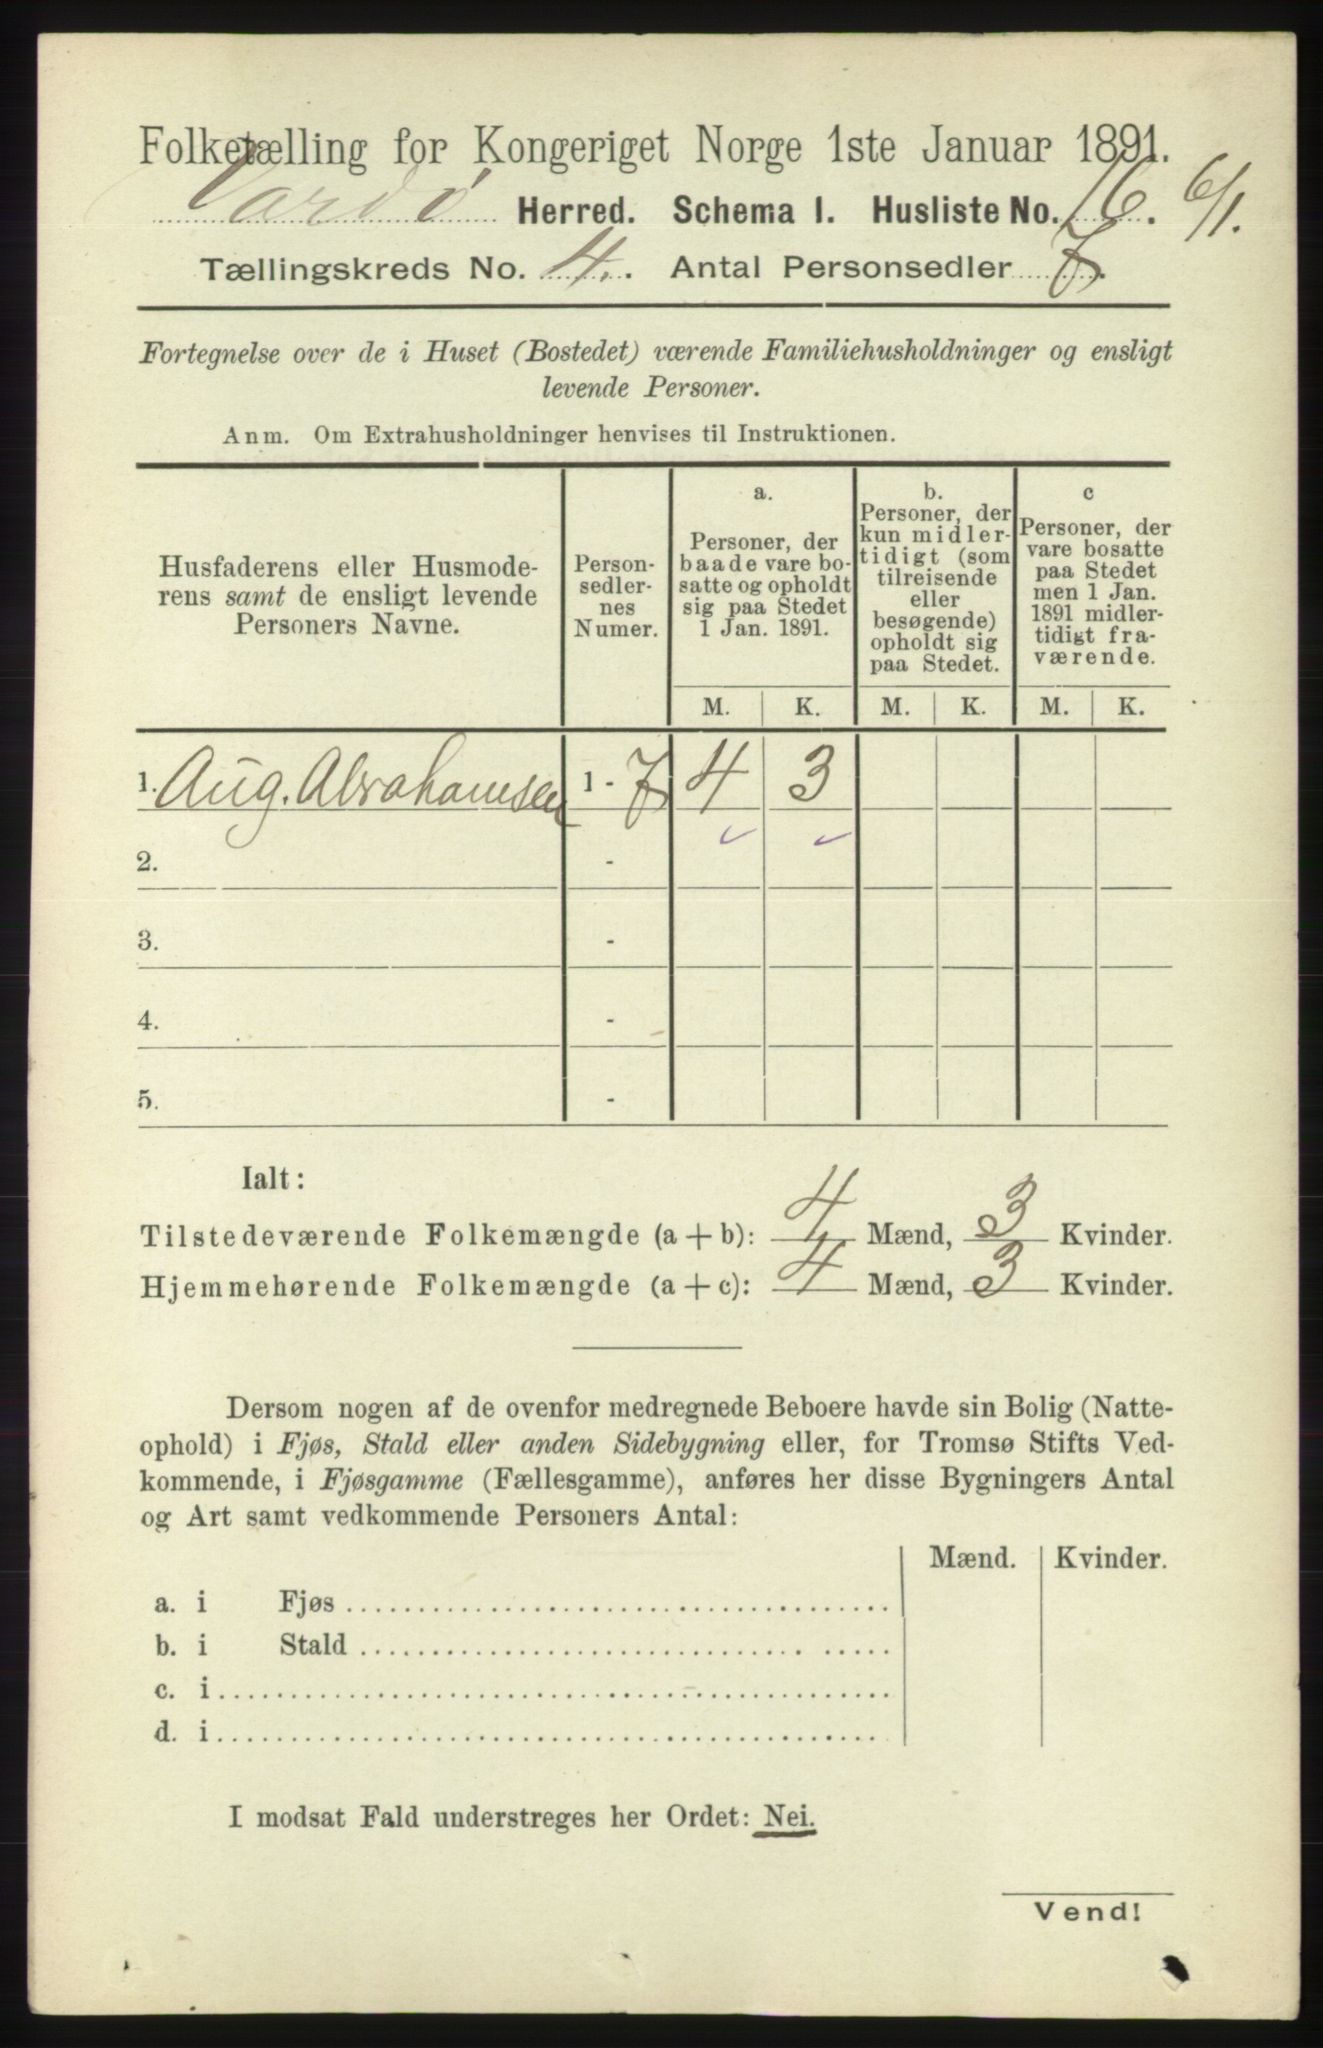 Folketælling for Kongeriget Norge 1ste Januar 1891.
Vardø Herred. Schema I. Husliste No. 16. 6/1.
Tællingskreds No. 4. Antal Personsedler 7.
Fortegnelse over de i Huset (Bostedet) værende Familiehusholdninger og ensligt
levende Personer.
Anm. Om Extrahusholdninger henvises til Instruktionen.
Husfaderens eller Husmode-
rens samt de ensligt levende
Personers Navne.
Person-
sedler-
nes
Numer.
a.
Personer, der
baade vare bo-
satte og opholdt
sig paa Stedet
1 Jan. 1891.
b.
Personer, der
kun midler-
tidigt (som
tilreisende
eller
besøgende)
opholdt sig
paa Stedet.
c
Personer, der
vare bosatte
paa Stedet
men 1 Jan.
1891 midler-
tidigt fra-
værende.
M. K. M. K. M. K.
1. Aug. Abrahamsen 1 - 7 4 3
2. -
3. -
4. -
5. -
Ialt:
Tilstedeværende Folkemængde (a + b): 4 Mænd, 3 Kvinder.
Hjemmehørende Folkemængde (a + c): 4 Mænd, 3 Kvinder.
Dersom nogen af de ovenfor medregnede Beboere havde sin Bolig (Natte-
ophold) i Fjøs, Stald eller anden Sidebygning eller, for Tromsø Stifts Ved-
kommende, i Fjøsgamme (Fællesgamme), anføres her disse Bygningers Antal
og Art samt vedkommende Personers Antal:
Mænd. Kvinder.
a. i Fjøs
b. i Stald
c. i
d. i
I modsat Fald understreges her Ordet: Nei.
Vend!